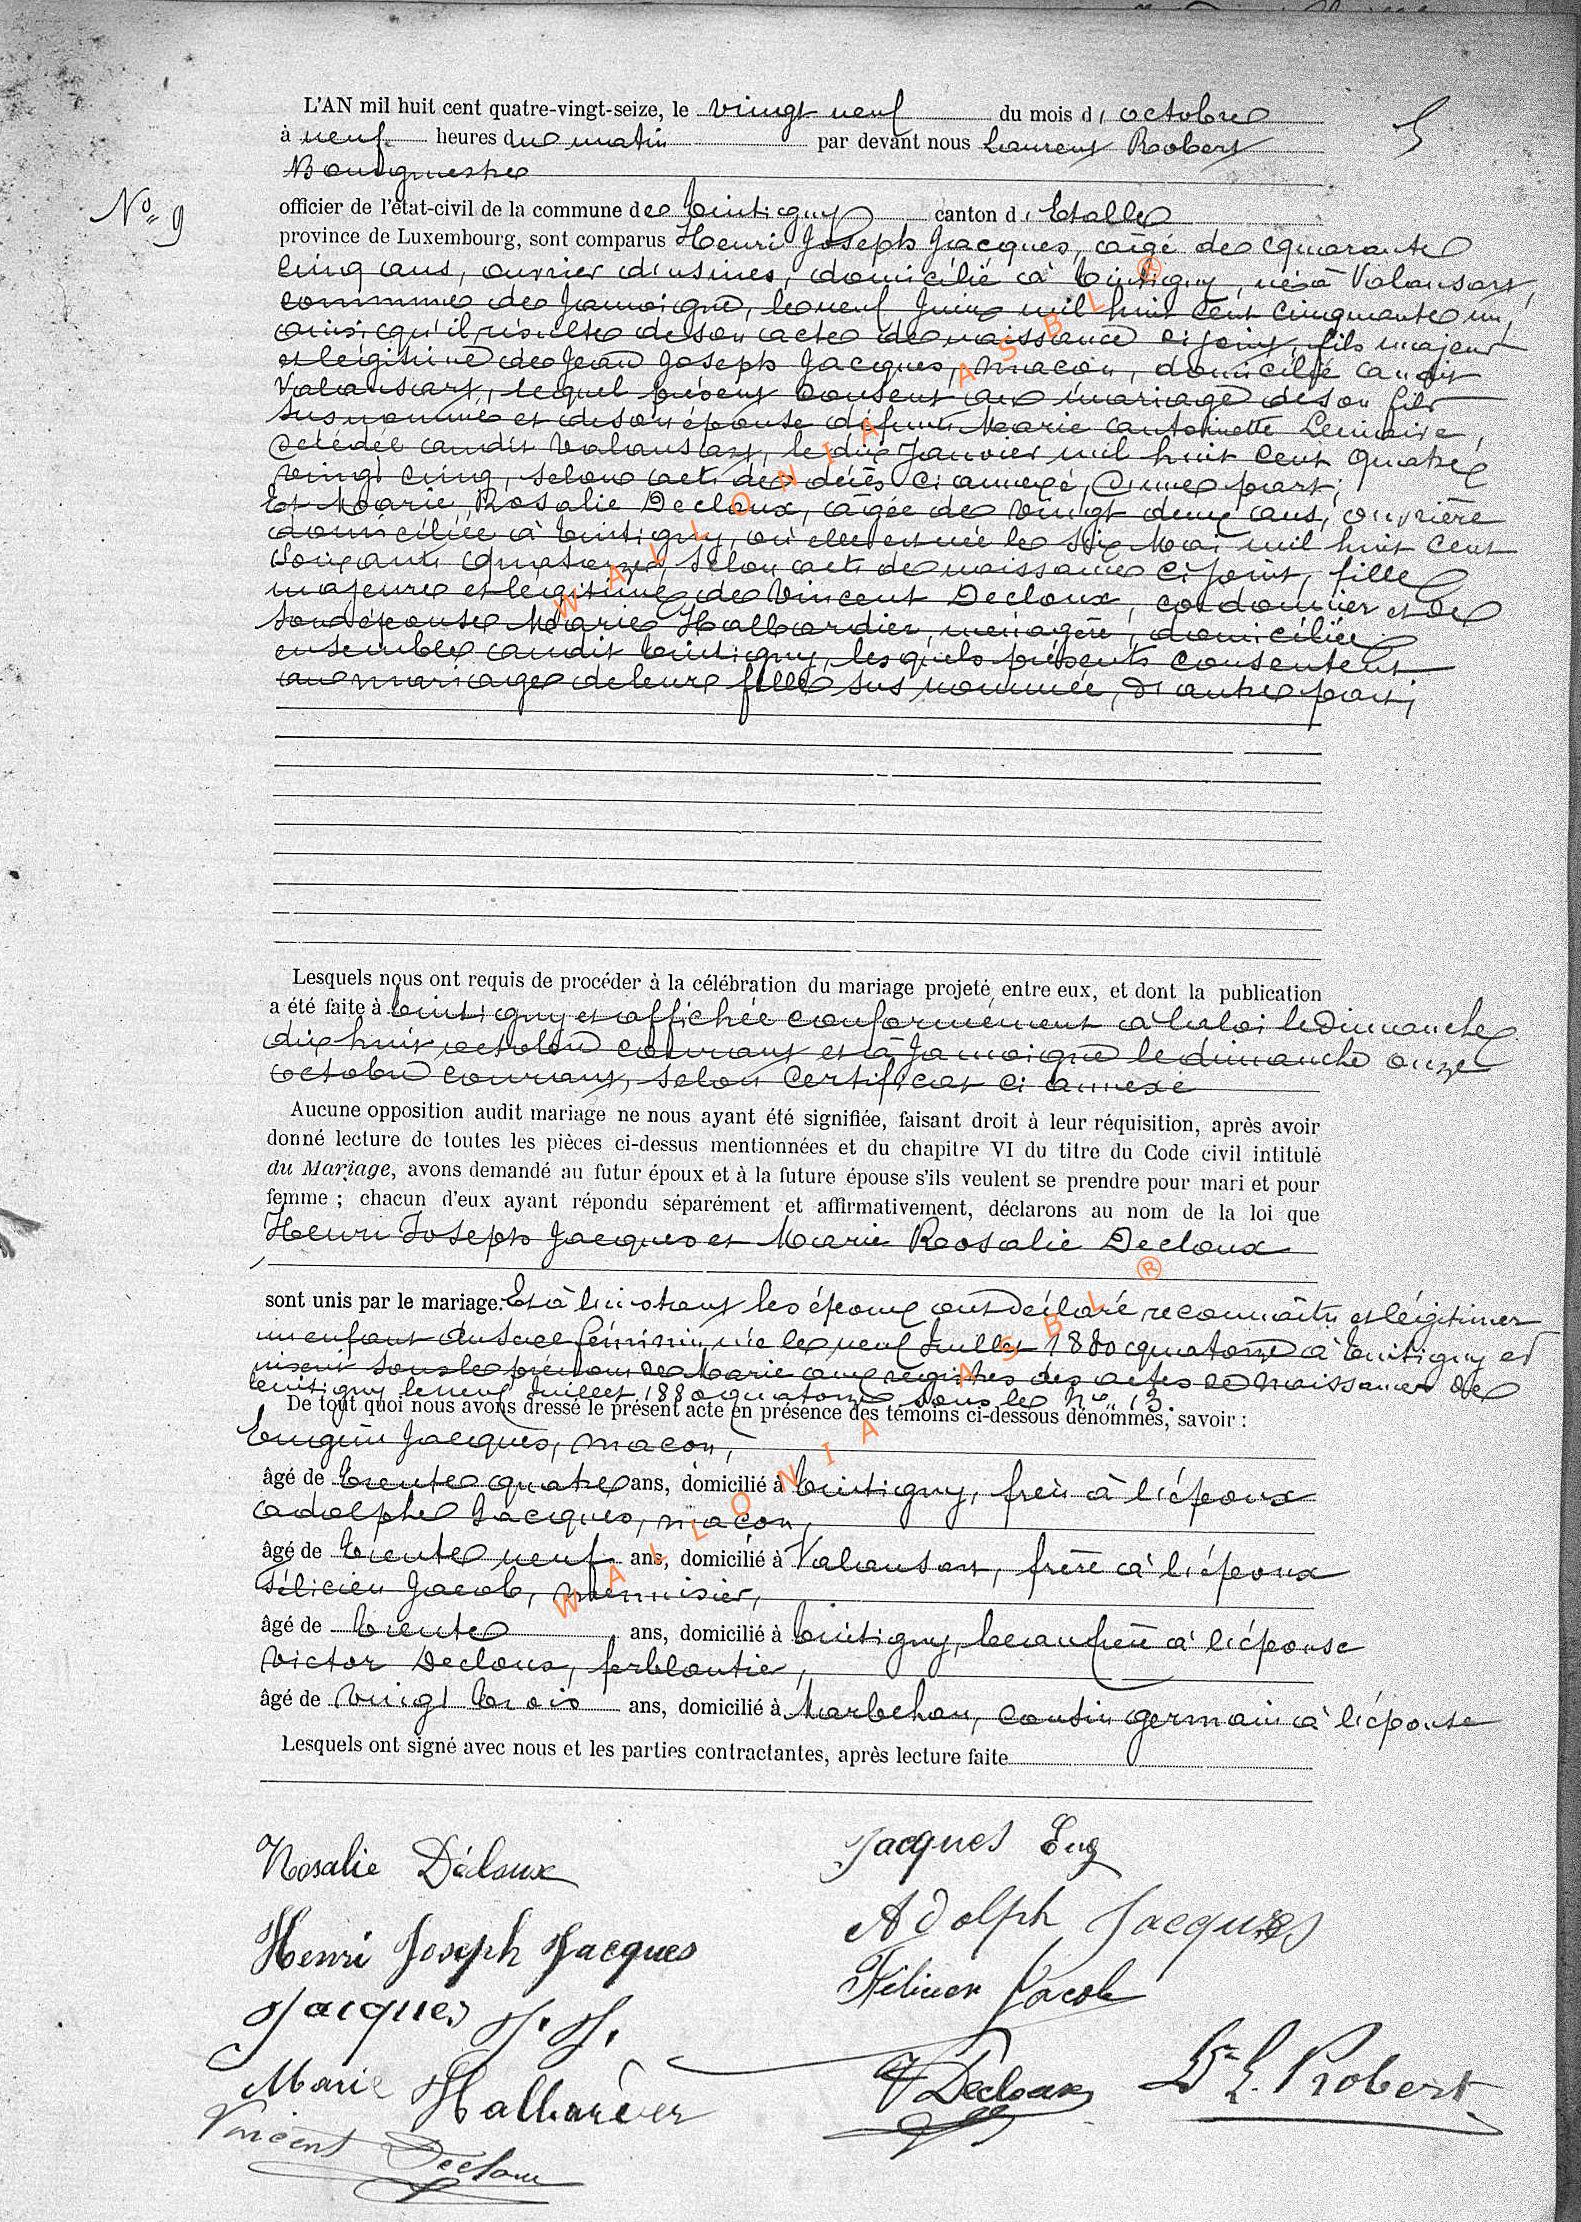 L'AN mil huit cent quatre-vingt-seize, le vingt neuf du mois d'octobre
5
à neuf heures du matin par devant nous Laurent Robert
Bourgmestre
N° 9
officier de l'état-civil de la commune de Tintigny canton d'Etalle
province de Luxembourg, sont comparus Henri Joseph Jacques, agé de quarante
cinq ans, ouvrier d'usines, domicilié à Tintigny, né à Valansart,
commune de Jamoigne, le neuf Juin mil huit cent cinquante un,
ainsi qu'il résulte de son acte de naissance ci joint, fils majeur
et légitime de Jean Joseph Jacques, maçon, domicilié audit
Valansart, lequel présent consent au mariage de son fils
susnommé et de son épouse défunte Marie Antoinette Lemaire,
décédée audit Valansart, le dix Janvier mil huit cent quatre
vingt cinq, selon acte de décès ci annexé, d'une part;
Et Marie Rosalie Decloux, âgée de vingt deux ans, ouvrière
domiciliée à Tintigny, où elle est née le six Mai mil huit cent
soixante quatorze, selon acte de naissance ci joint, fille
majeure et légitime de Vincent Decloux, cordonnier et de
son épouse Marie Halbardier, ménagère, domiciliée
ensemble audit Tintigny, lesquels présents consentent
au mariage de leur fille sus nommée, d'autre part;
Lesquels nous ont requis de procéder à la célébration du mariage projeté entre eux, et dont la publication
a été faite à Tintigny et affichée conformément à la loi le dimanche
dix huit octobre courant et à Jamoigne le dimanche onze
octobre courant, selon certificat ci annexé
Aucune opposition audit mariage ne nous ayant été signifiée, faisant droit à leur réquisition, après avoir
donné lecture de toutes les pièces ci-dessus mentionnées et du chapitre VI du titre du Code civil intitulé
du Mariage, avons demandé au futur époux et à la future épouse s'ils veulent se prendre pour mari et pour
femme ; chacun d'eux ayant répondu séparément et affirmativement, déclarons au nom de la loi que
Henri Joseph Jacques et Marie Rosalie Decloux
sont unis par le mariage. Et à l'instant les époux ont déclaré reconnaître et légitimer
un enfant du sexe féminin, née le neuf Juillet 1880 quatorze à Tintigny et
inscrit sous le prénom de Marie aux registres des actes de naissances de
Tintigny le neuf Juillet 1880 quatorze sous le N° 13.
De tout quoi nous avons dressé le présent acte en présence des témoins ci-dessous dénommés, savoir :
Eugène Jacques, maçon,
âgé de trente quatre ans, domicilié à Tintigny, frère à l'époux
Adolphe Jacques, maçon,
âgé de trente neuf ans, domicilié à Valansart, frère à l'époux
Félicien Jacob, menuisier,
âgé de trente ans, domicilié à Tintigny, beaufrère à l'épouse
Victor Decloux, ferblantier,
âgé de vingt trois ans, domicilié à Marbehan, cousin germain à l'épouse
Lesquels ont signé avec nous et les parties contractantes, après lecture faite
Rosalie Décloux
Jacques Eug
Henri Joseph Jacques
Adolph Jacques
Félicien Jacob
Jacques J. J.
Marie Halbardier
V Decloux
L. Robert
Vincent Decloux
WALLONIA ASBL ®
WALLONIA ASBL ®